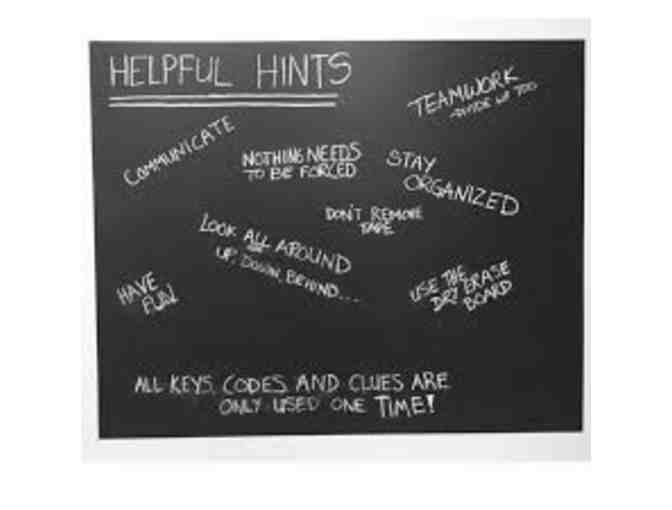 HELPFUL HINTS
TEAMWORK
COMMUNICATE
NOTHING NEEDS
TO BE FORCED
STAY
ORGANIZED
DON'T REMOVE
TAPE
LOOK ALL AROUND
UP, DOWN, BEHIND...
HAVE
FUN!
USE THE
DRY ERASE
BOARD
ALL KEYS, CODES AND CLUES ARE
ONLY USED ONE TIME!